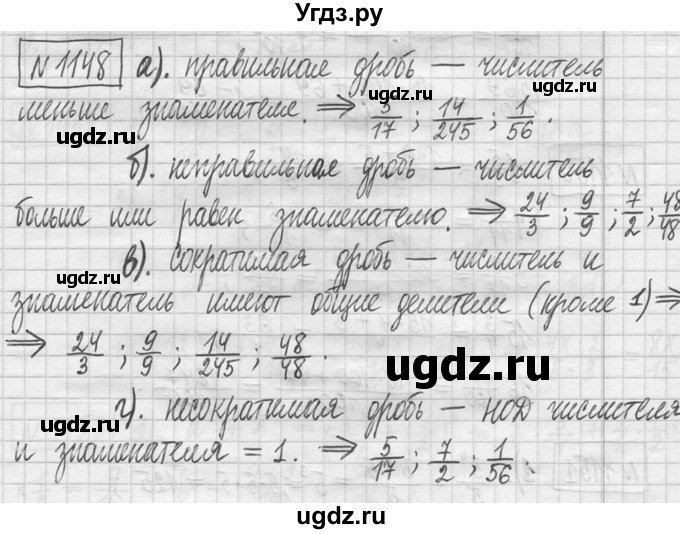 Угдз.ру
N 1148 а). правильная дробь — числитель
меньше знаменателя. ⇒ 5/17 ; 14/245 ; 1/56 .
ugdz.ru ugdz.ru ugdz.ru
б). неправильная дробь — числитель
больше или равен знаменателю. ⇒ 24/3 ; 9/9 ; 7/2 ; 48/48
ugdz.ru ugdz.ru
в). сократимая дробь — числитель и
знаменатель имеют общие делители (кроме 1) ⇒
⇒ 24/3 ; 9/9 ; 14/245 ; 48/48 .
ugdz.ru
г). несократимая дробь — НОД числителя
ugdz.ru
и знаменателя = 1. ⇒ 5/17 ; 7/2 ; 1/56 .
ugdz.ru ugdz.ru
ugdz.ru